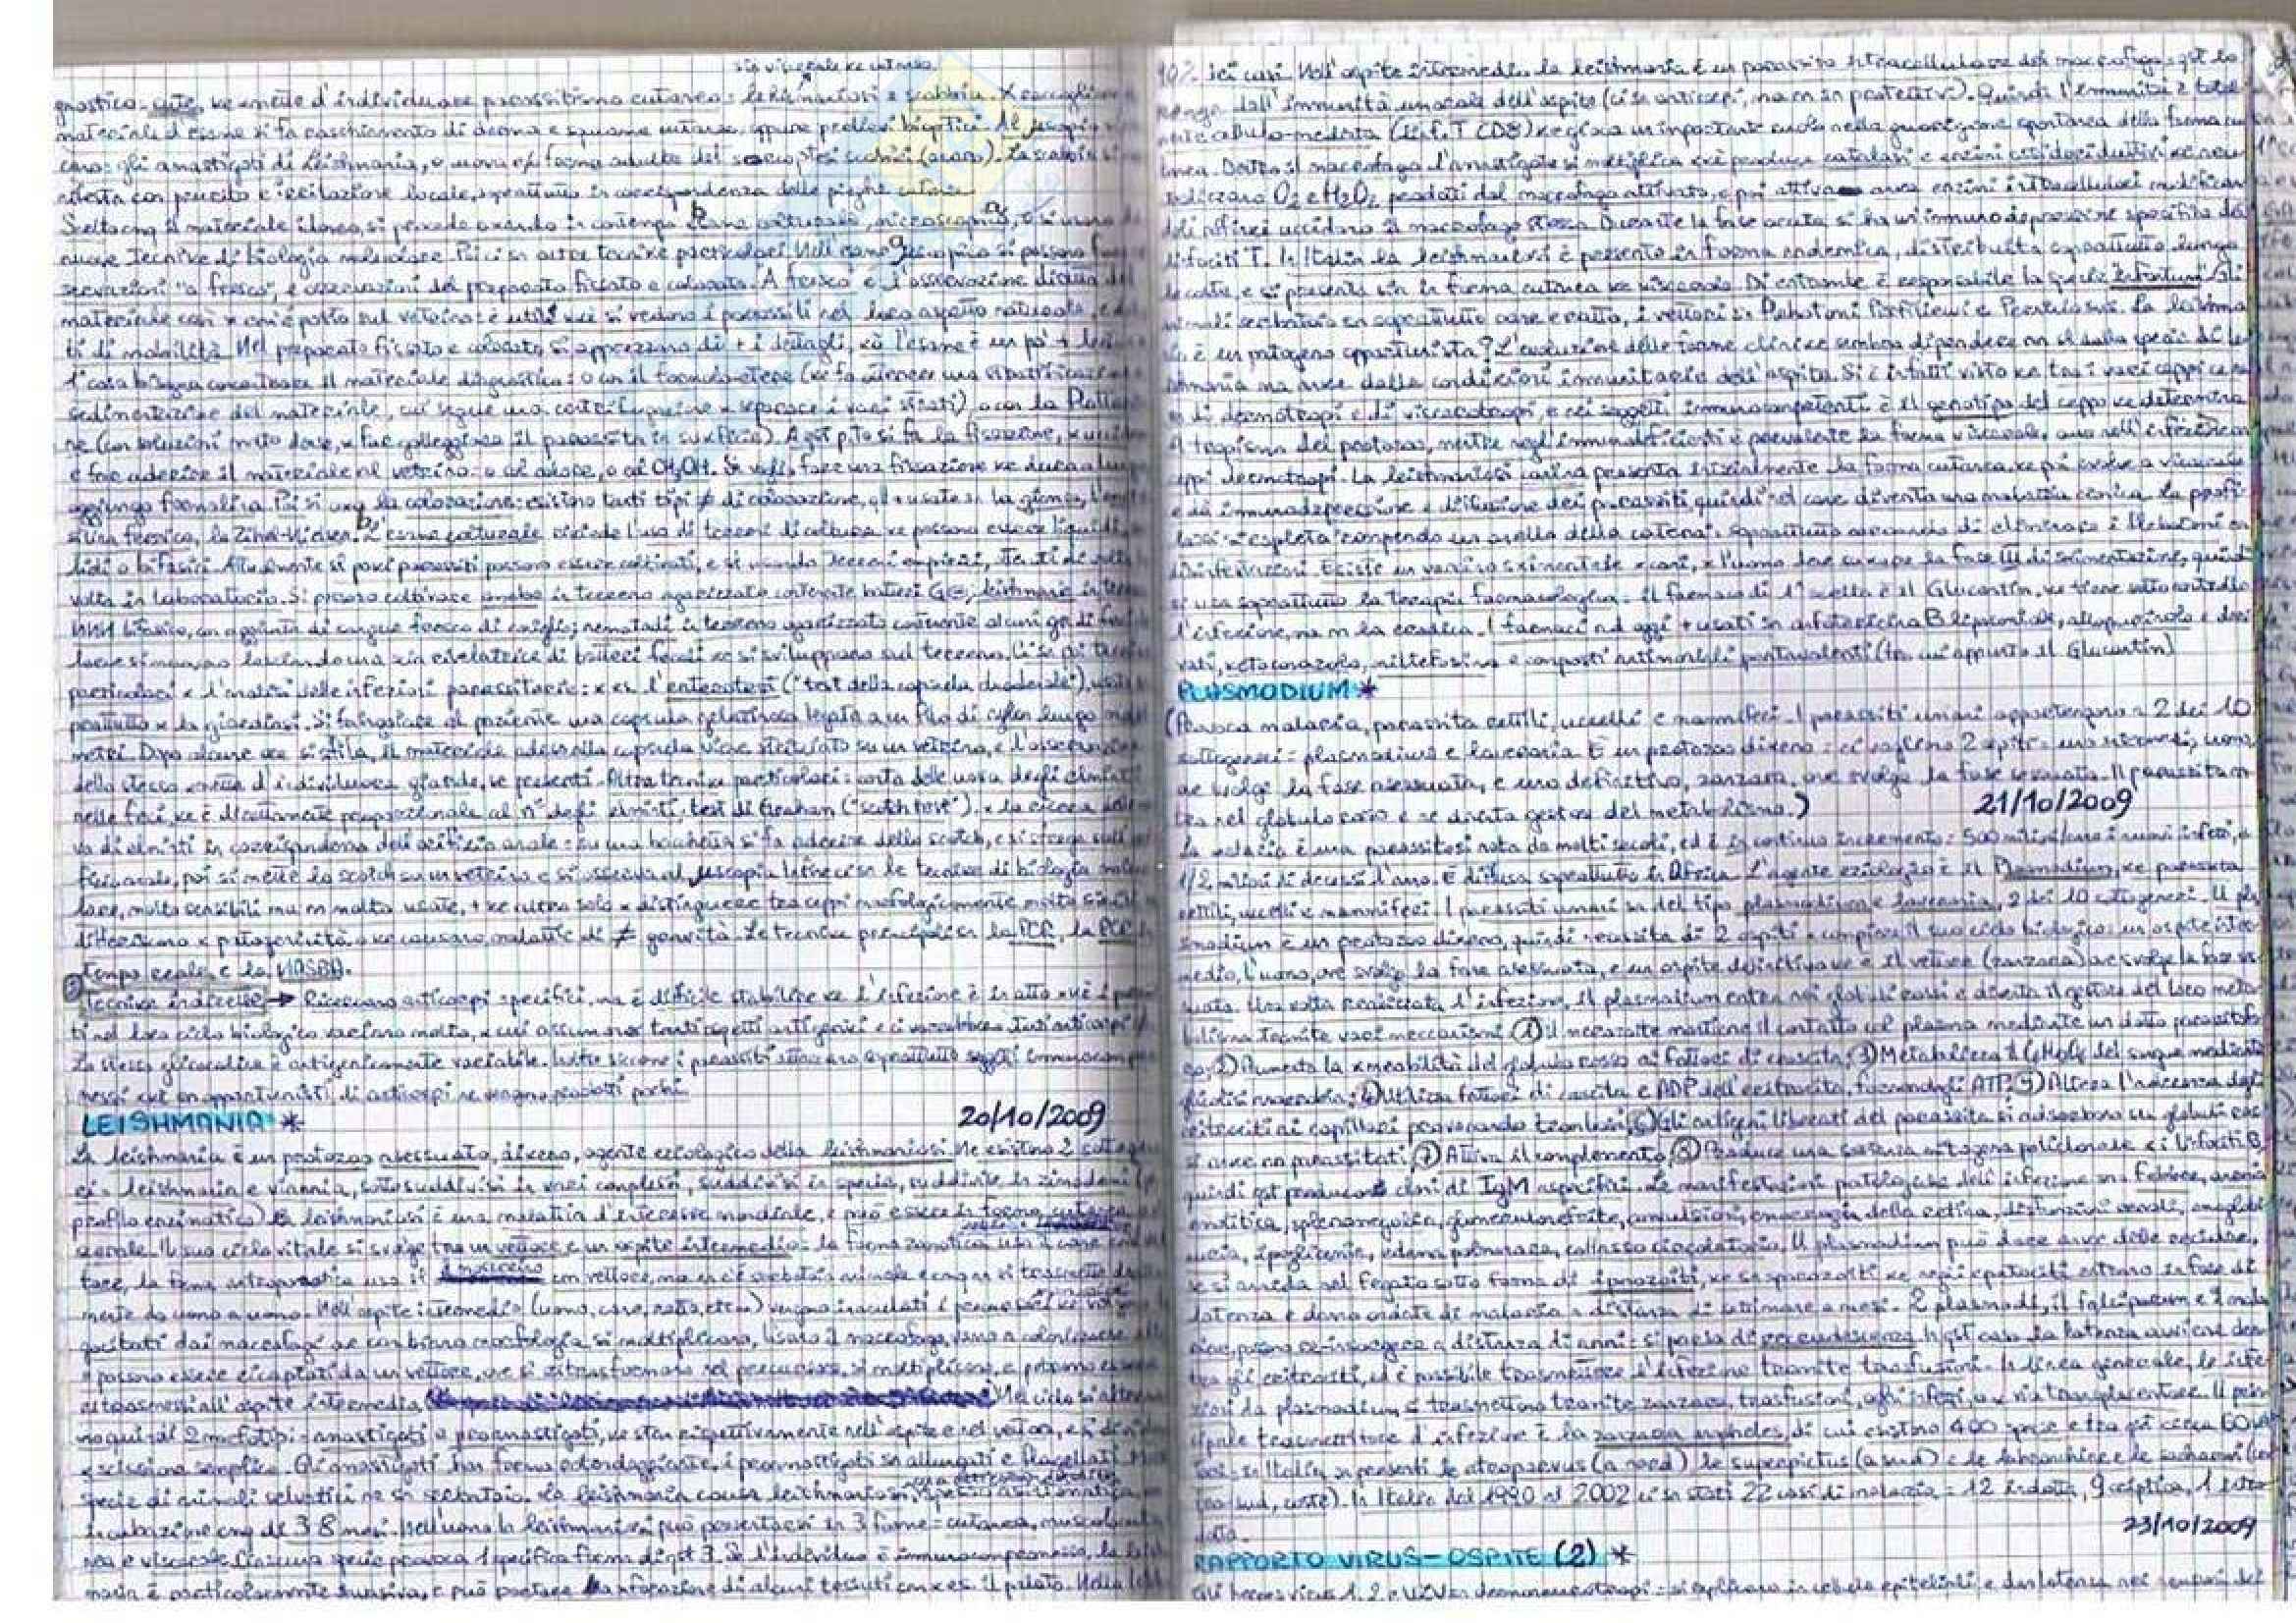 sia viscerale ke cutanea
gnostico. cute, ke emette d'individuare parassitismo cutaneo: leishmaniosi e scabbia. X raccogliere
materiale d'esame si fa raschiamento di derma e squame cutanee, oppure prelievi bioptici. Al
cano: gli amastigoti di Leishmania, o uova e/o forme adulte del sarcoptes scabiei (acaro). La scabbia si
festa con prurito e irritazione locale, soprattutto in corrispondenza delle pieghe cutanee
Scelto cmq il materiale idoneo, si procede usando in contempo esame colturale, microscopico, e si usano
nuove tecniche di biologia molecolare. Poi ci sn altre tecniche particolari. Nell'esame si possono fare
servazioni "a fresco", e osservazioni del preparato fissato e colorato. A fresco è l'osservazione diretta del
materiale così x com'è posto sul vetrino: è utile xké si vedono i parassiti nel loro aspetto naturale, e
ti di mobilità. Nel preparato fissato e colorato si apprezzano di + i dettagli, xò l'esame è un pò + lento
1° cosa bisogna concentrare il materiale diagnostico: o con il formolo-etere (ke fa ottenere una stratificazione
sedimentazione del materiale, cui segue una centrifugazione x separare i vari strati), o con la flotta
ne (con soluzioni molto dense, x far galleggiare il parassita in superficie). A qst pto si fa la fissazione, x
e fare aderire il materiale al vetrino: o col calore, o col CH₃OH. Se voglio fare una fissazione ke duca a lungo
aggiungo formalina. Poi si usa la colorazione: esistono tanti tipi ≠ di colorazione, gli + usate sn la giemsa,
silina ferrica, la Ziehl-Nielsen. L'esame colturale richiede l'uso di terreni di coltura ke possono essere liquidi,
lidi o bifasici. Attualmente si poki parassiti possono essere coltivati, e si usando terreni empirici,
volta in laboratorio. Si possono coltivare amebe in terreno agarizzato contenente batteri G⊖; leishmanie in
NNN bifasico, con aggiunta di sangue fresco di coniglio; nematodi in terreno agarizzato contenente alcuni gr di feci
larve si muovono lasciando una scia rivelatrice di batteri fecali ke si sviluppano sul terreno. Ci sn poi tecniche
particolari x l'analisi delle infezioni parassitarie: x es l'enterotest ("test della capsula duodenale"), usato
prattutto x la giardiasi. Si fa ingoiare al paziente una capsula gelatinosa legata a un filo di nylon lungo
metri. Dopo alcune ore si sfila, il materiale adeso alla capsula viene strisciato su un vetrino, e l'osservazione
dello stesso emette d'individuare giardie, se presenti. Altre tecniche particolari: conta delle uova degli elminti
nelle feci, ke è direttamente proporzionale al n° degli elminti; test di Graham ("scotch test"), x la ricerca
va di elminti in corrispondenza dell'orifizio anale: su una bacchetta si fa aderire dello scotch, e si sfrega sull'
fizio anale, poi si mette lo scotch su un vetrino e si osserva al microscopio. Infine ci sn le tecniche di biologia mole
lare, molto sensibili ma nn molto usate, + ke altro solo x distinguere tra ceppi morfologicamente molto simili
differiscono x patogenicità, o ke causano malattie di ≠ gravità. Le tecniche principali sn la PCR, la PCR in
tempo reale, e la NASBA.
tecniche indirette → Ricercano anticorpi specifici, ma è difficile stabilire ke l'infezione è in atto xké i paras
ti nel loro ciclo biologico variano molto, x cui assumono tanti aspetti antigenici e ci vorrebbero tanti anticorpi
Lo stesso glicocalice è antigenicamente variabile. Inoltre siccome i parassiti attaccano soprattutto soggetti immunocompro
messi xké sn opportunisti, di anticorpi ne vengono prodotti pochi.
LEISHMANIA * 20/10/2009
La leishmania è un protozoo asessuato, dixeno, agente eziologico della leishmaniosi. Ne esistono 2 sottogene
ri: leishmania e viannia, sottosuddivisi in vari complessi, suddivisi in specie, suddivise in zimodemi
profilo enzimatico). La leishmaniosi è una malattia d'interesse mondiale, e può essere in forma cutanea o
scerale. Il suo ciclo vitale si svolge tra un vettore e un ospite intermedio: la forma zoonotica usa il cane
toce, la forma antroponotica usa il con vettore, ma nn c'è serbatoio animale e cmq si trasmette diretta
mente da uomo a uomo. Nell'ospite intermedio (uomo, cane, ratto, etc) vengono inoculati i promastigoti ke vengono
gocitati dai macrofagi ove cambiano morfologia, si moltiplicano, lisano il macrofago, vanno a colonizzarne altri
e possono essere ricaptati da un vettore, ove si ritrasformano nel precursore, si moltiplicano, e potranno essere
ritrasmessi all'ospite intermedio. Nel ciclo si alterna
no quindi 2 morfotipi: amastigoti e promastigoti, ke stan rispettivamente nell'ospite e nel vettore, e si dividono
x scissione semplice. Gli amastigoti han forma rotondeggiante, i promastigoti sn allungati e flagellati.
specie di animali selvatici ne sn serbatoio. La leishmania causa leishmaniosi,
incubazione cmq di 3-8 mesi. Nell'uomo la leishmaniosi può presentarsi in 3 forme: cutanea, mucocuta
nea e viscerale. Ciascuna specie provoca 1 specifica forma di qst 3. Se l'individuo è immunocompromesso, la leish
mania è particolarmente invasiva, e può portare a perforazione di alcuni tessuti com x es. il palato. Nella
90% dei casi. Nell'ospite intermedio la leishmania è un parassita intracellulare del macrofago: qst lo
tengono dall'immunità umorale dell'ospite (ci sn anticorpi, ma nn sn protettivi). Quindi l'immunità è total
mente cellulo-mediata (linf. T CD8) ke gioca un importante ruolo nella guarigione spontanea della forma cu
tanea. Dentro il macrofago l'amastigote si moltiplica xké produce catalasi e enzimi ossidoriduttivi ke neu
tralizzano O₂ e H₂O₂ prodotti dal macrofago attivato, e poi attiva anke enzimi intracellulari modifican
doli affinché uccidano il macrofago stesso. Durante la fase acuta si ha un'immunodepressione specifica dei
linfociti T. In Italia la leishmaniosi è presente in forma endemica, distribuita soprattutto lungo
le coste, e si presenta sia in forma cutanea ke viscerale. Di entrambe è responsabile la specie infantum. Gli
animali serbatoio sn soprattutto cane e ratto, i vettori sn Flebotomi Perfiliewi e Perniciosus. La leishma
nia è un patogeno opportunista? L'evoluzione delle forme cliniche sembra dipendere nn sl dalla specie di lei
shmania ma anke dalle condizioni immunitarie dell'ospite. Si è infatti visto ke tra i vari ceppi ce ne
sn di dermotropi e di viscerotropi, e nei soggetti immunocompetenti è il genotipo del ceppo ke determina
il tropismo del protozoo, mentre negli immunodeficienti è prevalente la forma viscerale, anke nell'infezione con
ceppi dermotropi. La leishmaniosi canina presenta inizialmente la forma cutanea, ke poi evolve a viscerale
e dà immunodepressione e diffusione dei parassiti, quindi nel cane diventa una malattia cronica. La profi
lassi si espleta rompendo un anello della catena: soprattutto cercando di eliminare i flebotomi con
disinfestazioni. Esiste un vaccino sperimentale x cani, x l'uomo deve sup la fase III di sperimentazione, quindi
si usa soprattutto la terapia farmacologica. Il farmaco di 1° scelta è il Glucantim, ke tiene sotto controllo
l'infezione, ma nn la eradica. I farmaci ad oggi + usati sn anfotericina B liposomiale, allopurinolo e deri
vati, ketoconazolo, miltefosina e composti antimoniali pentavalenti (tra cui appunto il Glucantim)
PLASMODIUM *
(Provoca malaria, parassita rettili, uccelli e mammiferi. I parassiti umani appartengono a 2 dei 10
sottogeneri: plasmodium e laverania. È un protozoo dixeno: ci vogliono 2 ospiti: uno intermedio, uomo,
ove svolge la fase asessuata, e uno definitivo, zanzara, ove svolge la fase sessuata. Il parassita en
tra nel globulo rosso e ne diventa gestore del metabolismo.) 21/10/2009
La malaria è una parassitosi nota da molti secoli, ed è in continuo incremento: 500 milioni/anno i nuovi infetti, e
1/2 milioni di decessi l'anno. È diffusa soprattutto in Africa. L'agente eziologico è il Plasmodium, ke parassita
rettili, uccelli e mammiferi. I parassiti umani sn del tipo plasmodium e laverania, 2 dei 10 sottogeneri. Il pla
smodium è un protozoo dixeno, quindi necessita di 2 ospiti x compiere il suo ciclo biologico: un ospite inter
medio, l'uomo, ove svolge la fase asessuata, e un ospite definitivo ke è il vettore (zanzara) ove svolge la fase ses
suata. Una volta realizzata l'infezione, il plasmodium entra nei globuli rossi e diventa il gestore del loro meta
bolismo tramite vari meccanismi: ① il merozoite mantiene il contatto col plasma mediante un dotto parassitofo
ro, ② Aumenta la xmeabilità del globulo rosso ai fattori di crescita, ③ Metabolizza il C₆H₁₂O₆ del sangue mediante
glicolisi anaerobia, ④ Utilizza fattori di crescita e ADP dell'eritrocita, fornendogli ATP, ⑤ Altera l'aderenza degli
eritrociti ai capillari provocando trombosi, ⑥ Gli antigeni liberati del parassita si adsorbono sui globuli rossi
anke nn parassitati, ⑦ Attiva il complemento, ⑧ Produce una sostanza mitogena policlonale x i linfociti B,
quindi qst producono cloni di IgM aspecifici. Le manifestazioni patologiche dell'infezione sn: febbre, anemia
emolitica, splenomegalia, glomerulonefrite, convulsioni, emorragia della retina, disfunzioni renali, emoglobi
nuria, ipoglicemia, edema polmonare, collasso circolatorio. Il plasmodium può dare anke delle recidive,
xké si annida nel fegato sotto forma di ipnozoiti, ke sn sporozoiti ke negli epatociti entrano in fase di
latenza e danno ondate di malaria a distanza di settimane o mesi. 2 plasmodi, il falciparum e il mala
riae, posson re-insorgere a distanza di anni: si parla di recrudescenza. In qst caso la latenza avviene den
tro gli eritrociti, ed è possibile trasmettere l'infezione tramite trasfusioni. In linea generale, le infe
zioni da plasmodium si trasmettono tramite zanzara, trasfusioni, aghi infetti, o x via transplacentare. Il prin
cipale trasmettitore d'infezione è la zanzara anopheles, di cui esistono 400 specie e tra qst circa 60
in Italia sn presenti le atroparvus (a nord) le superpictus (a sud) e le labranchiae e le sacharovi (cen
tro-sud, coste). In Italia dal 1990 al 2002 ci sn stati 22 casi di malaria: 12 indotta, 9 criptica, 1 intro
dotta.
23/10/2009
RAPPORTO VIRUS-OSPITE (2) *
Gli herpes virus 1, 2 e VZV sn dermoneurotropi: si replicano in cellule epiteliali, e dan latenza nei neuroni dei